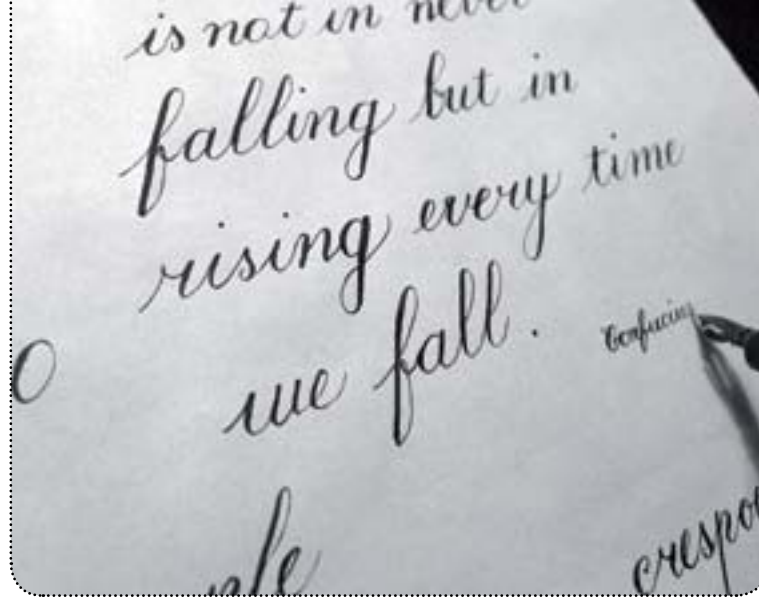 is not in never
falling but in
rising every time
we fall.
Confucius